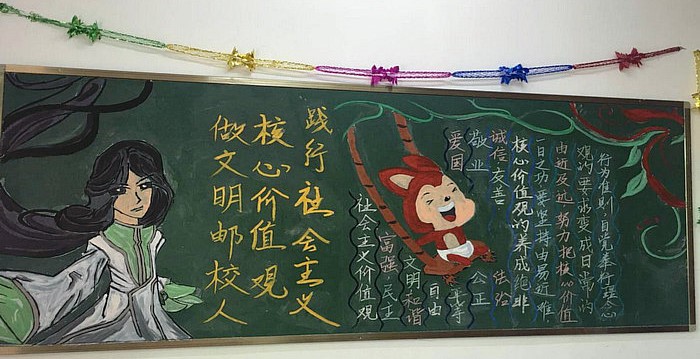 战行社会主义
核心价值观
做文明邮校人
社会主义价值观
富强 民主
文明 和谐
自由
平等
公正
法治
爱国
敬业
诚信 友善
核心价值观的养成绝非
一日之功 要坚持由易近难
由近及远 努力把核心价值
观的要求变成日常的
行为准则,自觉奉行